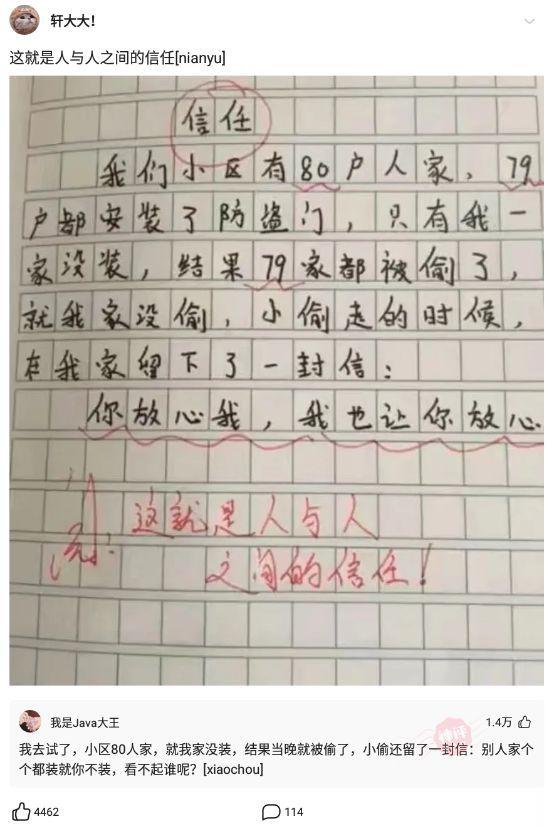 轩大大!
这就是人与人之间的信任[nianyu]
信任
我们小区有80户人家,79
户都安装了防盗门,只有我一
家没装,结果79家都被偷了,
就我家没偷,小偷走的时候,
在我家留下了一封信:
你放心我,我也让你放心.
这就是人与人
之间的信任!
我是Java大王
1.4万
神评
我去试了,小区80人家,就我家没装,结果当晚就被偷了,小偷还留了一封信:别人家个
个都装就你不装,看不起谁呢?[xiaochou]
4462
114